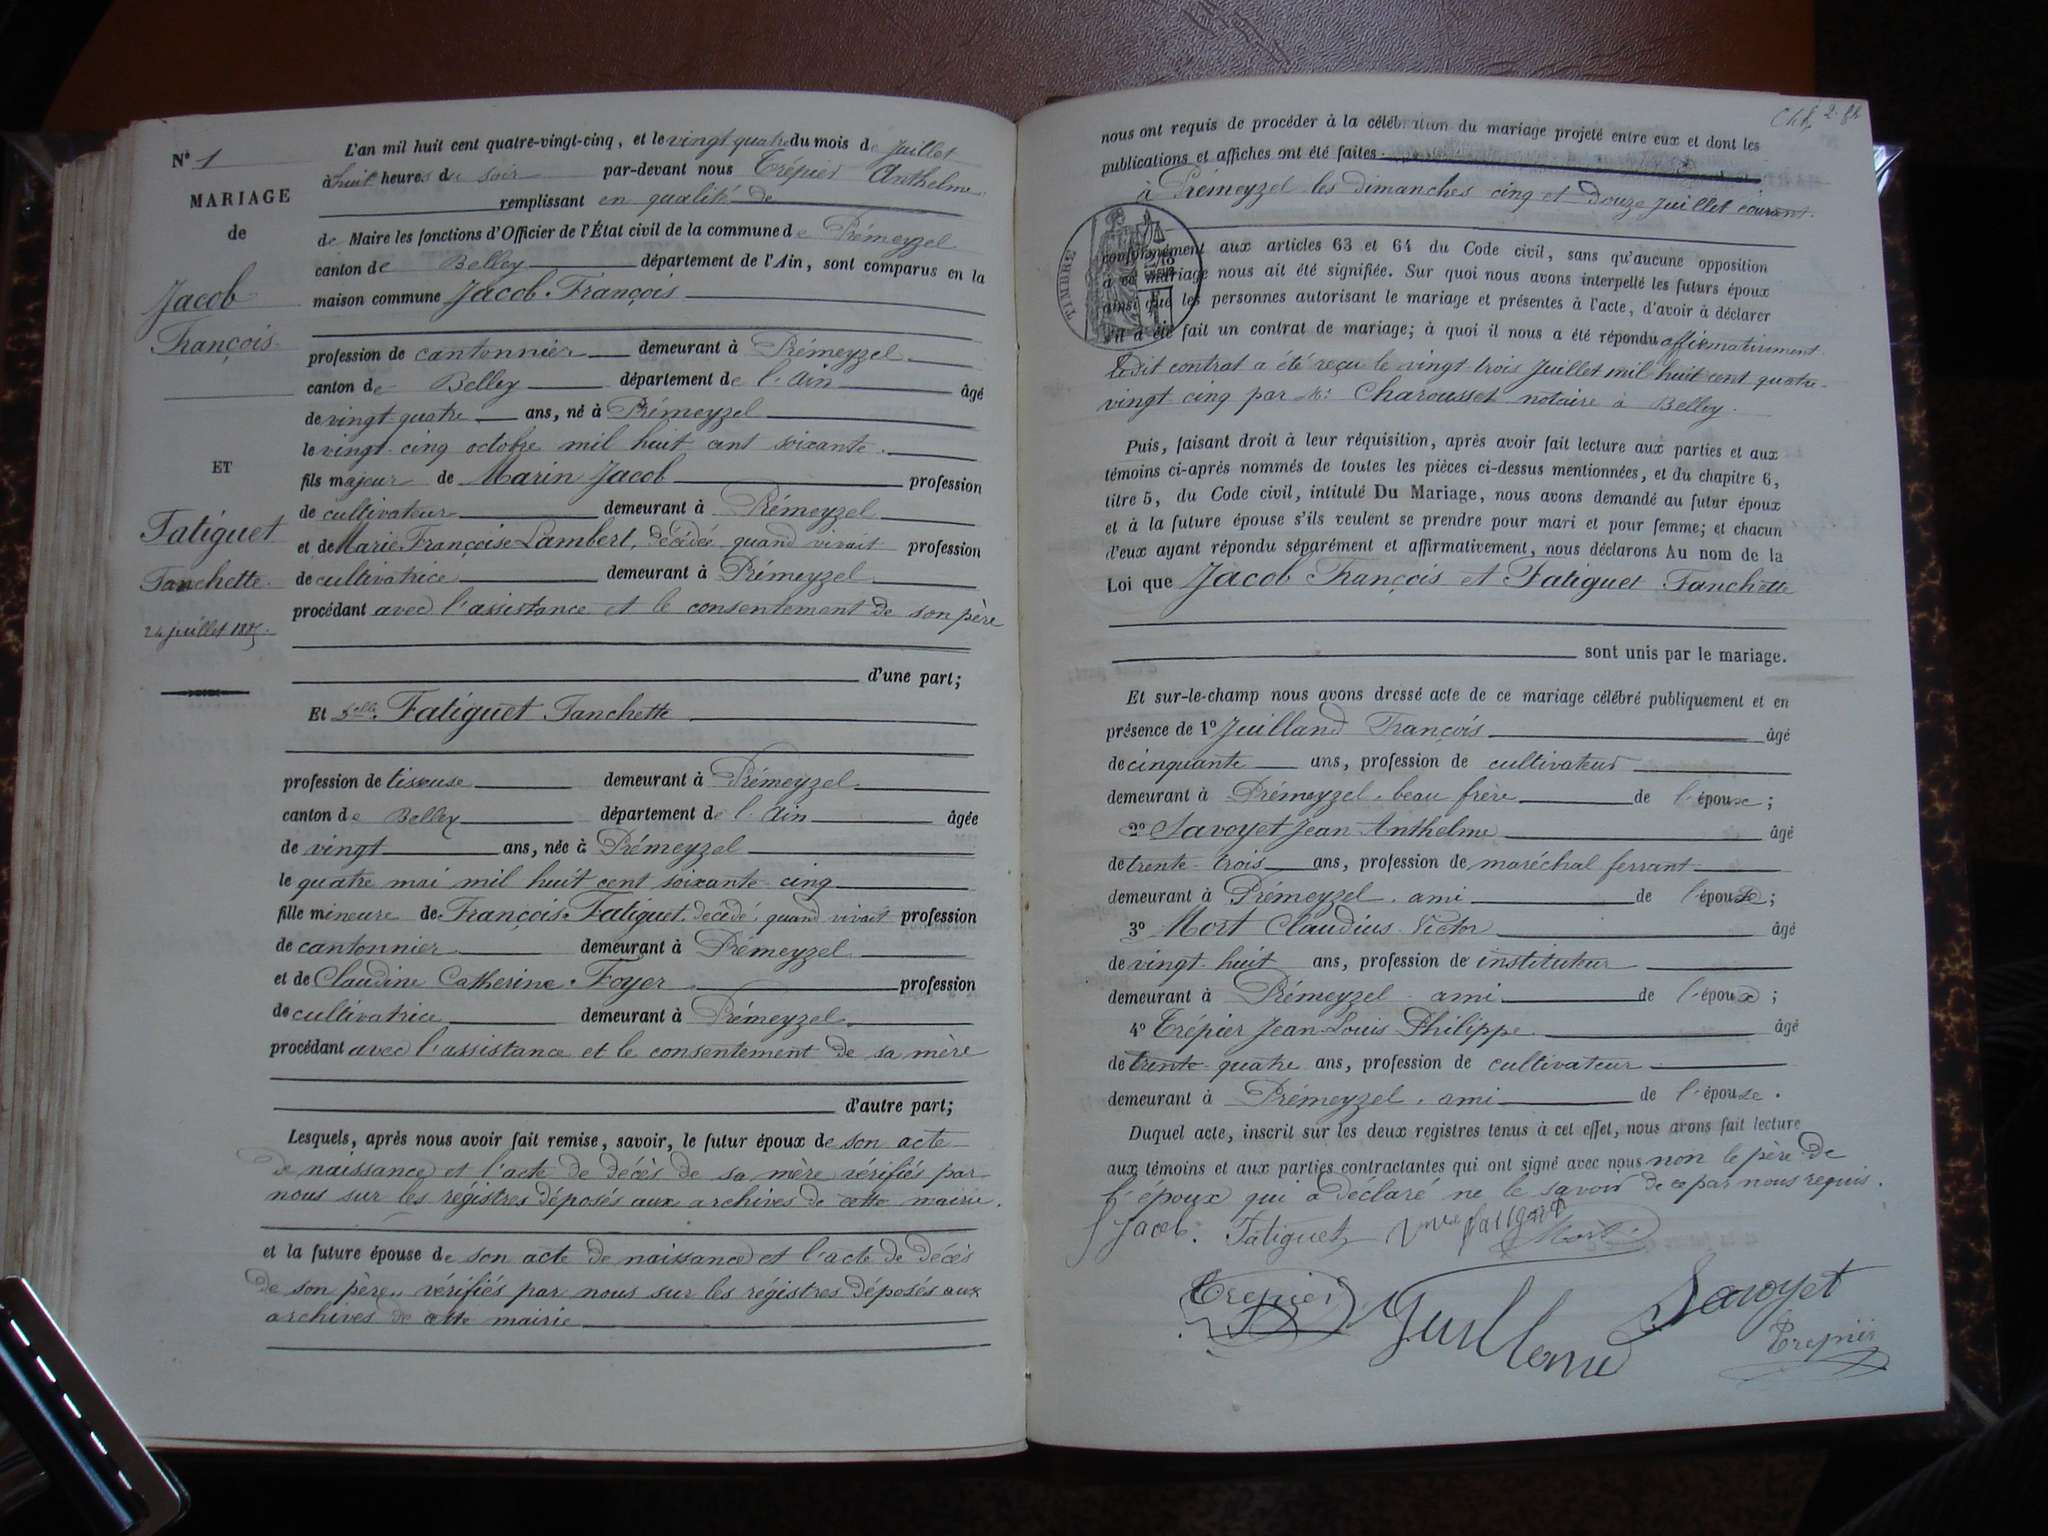 N° 1
MARIAGE
de
Jacob
François
ET
Fatiguet
Fanchette
24 juillet 1885.
L'an mil huit cent quatre-vingt-cinq, et le vingt quatre du mois de Juillet
à huit heures du soir par-devant nous Trépier Anthelme
remplissant en qualité de
de Maire les fonctions d'Officier de l'État civil de la commune de Prémeyzel
canton de Belley département de l'Ain, sont comparus en la
maison commune Jacob François
profession de cantonnier demeurant à Prémeyzel
canton de Belley département de l'Ain âgé
de vingt quatre ans, né à Prémeyzel
le vingt cinq octobre mil huit cent soixante
fils majeur de Marin Jacob profession
de cultivateur demeurant à Prémeyzel
et de Marie Françoise Lambert, décédée quand vivait profession
de cultivatrice demeurant à Prémeyzel
procédant avec l'assistance et le consentement de son père
d'une part;
Et Delle Fatiguet Fanchette
profession de tisseuse demeurant à Prémeyzel
canton de Belley département de l'Ain âgée
de vingt ans, née à Prémeyzel
le quatre mai mil huit cent soixante-cinq
fille mineure de François Fatiguet, décédé, quand vivait profession
de cantonnier demeurant à Prémeyzel
et de Claudine Catherine Foyer profession
de cultivatrice demeurant à Prémeyzel
procédant avec l'assistance et le consentement de sa mère
d'autre part;
Lesquels, après nous avoir fait remise, savoir, le futur époux de son acte
de naissance et l'acte de décès de sa mère vérifiés par
nous sur les régistres déposés aux archives de cette mairie.
et la future épouse de son acte de naissance et l'acte de décès
de son père, vérifiés par nous sur les régistres déposés aux
archives de cette mairie
nous ont requis de procéder à la célébration du mariage projeté entre eux et dont les
publications et affiches ont été faites
à Prémeyzel les dimanches cinq et douze juillet courant.
TIMBRE
conformément aux articles 63 et 64 du Code civil, sans qu'aucune opposition
à ce mariage nous ait été signifiée. Sur quoi nous avons interpellé les futurs époux
ainsi que les personnes autorisant le mariage et présentes à l'acte, d'avoir à déclarer
s'il a été fait un contrat de mariage; à quoi il nous a été répondu affirmativement
Ledit contrat a été reçu le vingt trois Juillet mil huit cent quatre-
vingt cinq par Me Charousset notaire à Belley.
Puis, faisant droit à leur réquisition, après avoir fait lecture aux parties et aux
témoins ci-après nommés de toutes les pièces ci-dessus mentionnées, et du chapitre 6,
titre 5, du Code civil, intitulé Du Mariage, nous avons demandé au futur époux
et à la future épouse s'ils veulent se prendre pour mari et pour femme; et chacun
d'eux ayant répondu séparément et affirmativement, nous déclarons Au nom de la
Loi que Jacob François et Fatiguet Fanchette
sont unis par le mariage.
Et sur-le-champ nous avons dressé acte de ce mariage célébré publiquement et en
présence de 1° Juilland François âgé
de cinquante ans, profession de cultivateur
demeurant à Prémeyzel, beau frère de l'époux;
2° Savoyet Jean Anthelme âgé
de trente-trois ans, profession de maréchal ferrant
demeurant à Prémeyzel, ami de l'épouse;
3° Mort Claudius Victor âgé
de vingt-huit ans, profession de instituteur
demeurant à Prémeyzel ami de l'époux;
4° Trépier Jean Louis Philippe âgé
de trente quatre ans, profession de cultivateur
demeurant à Prémeyzel, ami de l'épouse.
Duquel acte, inscrit sur les deux registres tenus à cet effet, nous avons fait lecture
aux témoins et aux parties contractantes qui ont signé avec nous non le père de
l'époux qui a déclaré ne le savoir de ce par nous requis.
f Jacob. Fatiguet Mort
Trepier Savoyet
Trepier